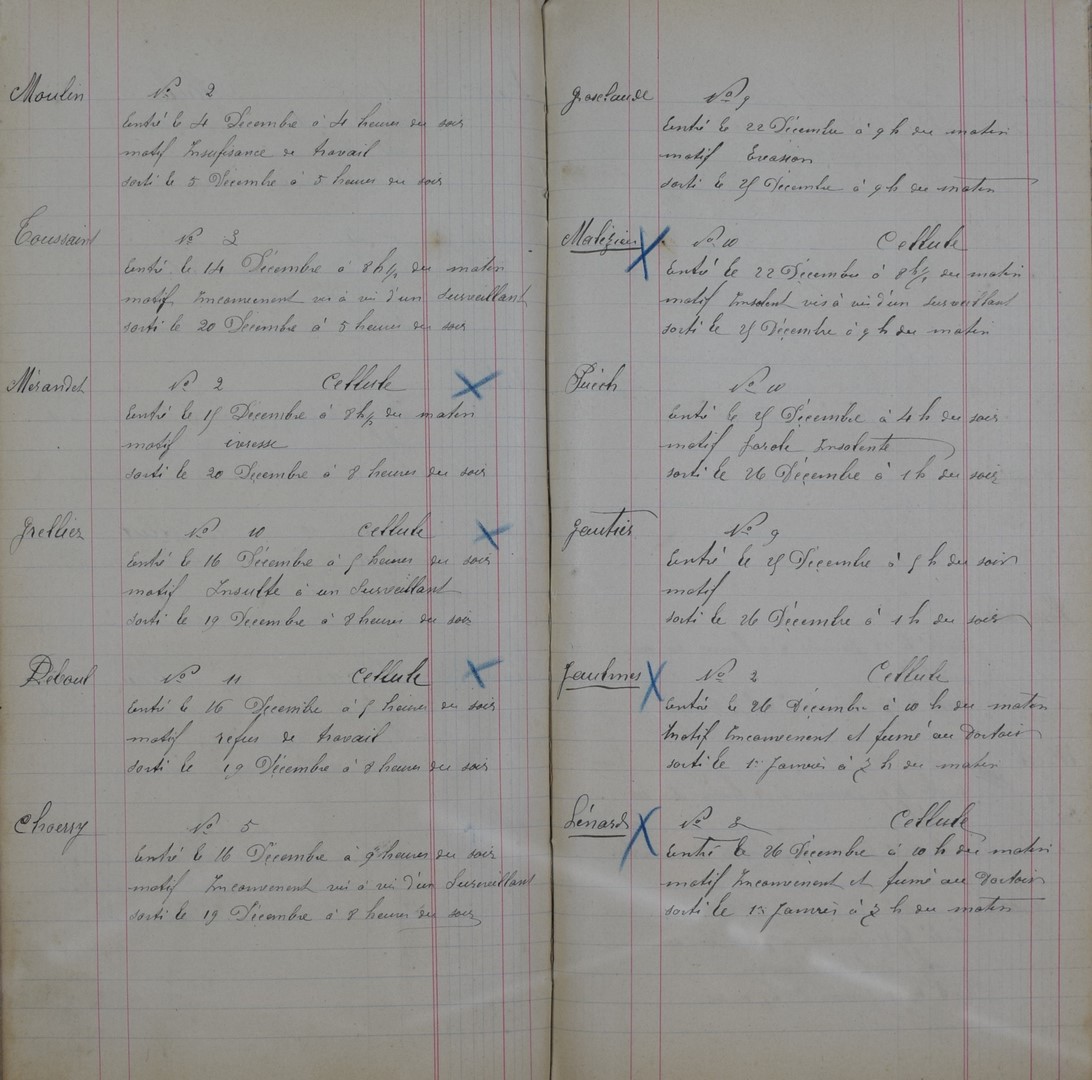 Moulin N° 2
Entré le 4 Décembre à 4 heures du soir
motif Insufisance de travail
sorti le 5 Décembre à 5 heures du soir
Toussaint N° 3
Entré le 14 Décembre à 8 h ½ du matin
motif Inconvenent vis à vis d'un Surveillant
sorti le 20 Décembre à 5 heures du soir
Mérandet N° 2 Cellule
Entré le 15 Décembre à 8 h ½ du matin
motif ivresse
sorti le 20 Décembre à 8 heures du soir
Grellier N° 10 Cellule
Entré le 16 Décembre à 5 heures du soir
motif Insulte à un Surveillant
sorti le 19 Décembre à 8 heures du soir
Deboul N° 11 Cellule
Entré le 16 Décembre à 5 heures du soir
motif refus de travail
sorti le 19 Décembre à 8 heures du soir
Choerry N° 5
Entré le 16 Décembre à 9 heures du soir
motif Inconvenent vis à vis d'un Surveillant
sorti le 19 Décembre à 8 heures du soir
Groselaude N° 9
Entré le 22 Décembre à 9 h du matin
motif Evasion
sorti le 25 Décembre à 9 h du matin
Malézieu N° 10 Cellule
Entré le 22 Décembre à 8 h ½ du matin
motif Insolent vis à vis d'un surveillant
sorti le 25 Décembre à 9 h du matin
Puéch N° 10
Entré le 25 Décembre à 4 h du soir
motif Parole Insolente
sorti le 26 Décembre à 1 h du soir
Gautier N° 9
Entré le 25 Décembre à 5 h du soir
motif
sorti le 26 Décembre à 1 h du soir
N° 2 Cellule
Entré le 26 Décembre à 10 h du matin
Motif Inconvenent et fumé au Dortoir
sorti le 1er Janvier à 7 h du matin
Lénard N° 3 Cellule
Entré le 26 Décembre à 10 h du matin
motif Inconvenent et fumé au Dortoir
sorti le 1er Janvier à 7 h du matin